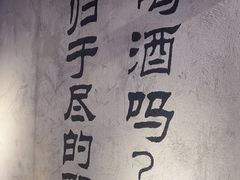 酒吗？
归于尽的